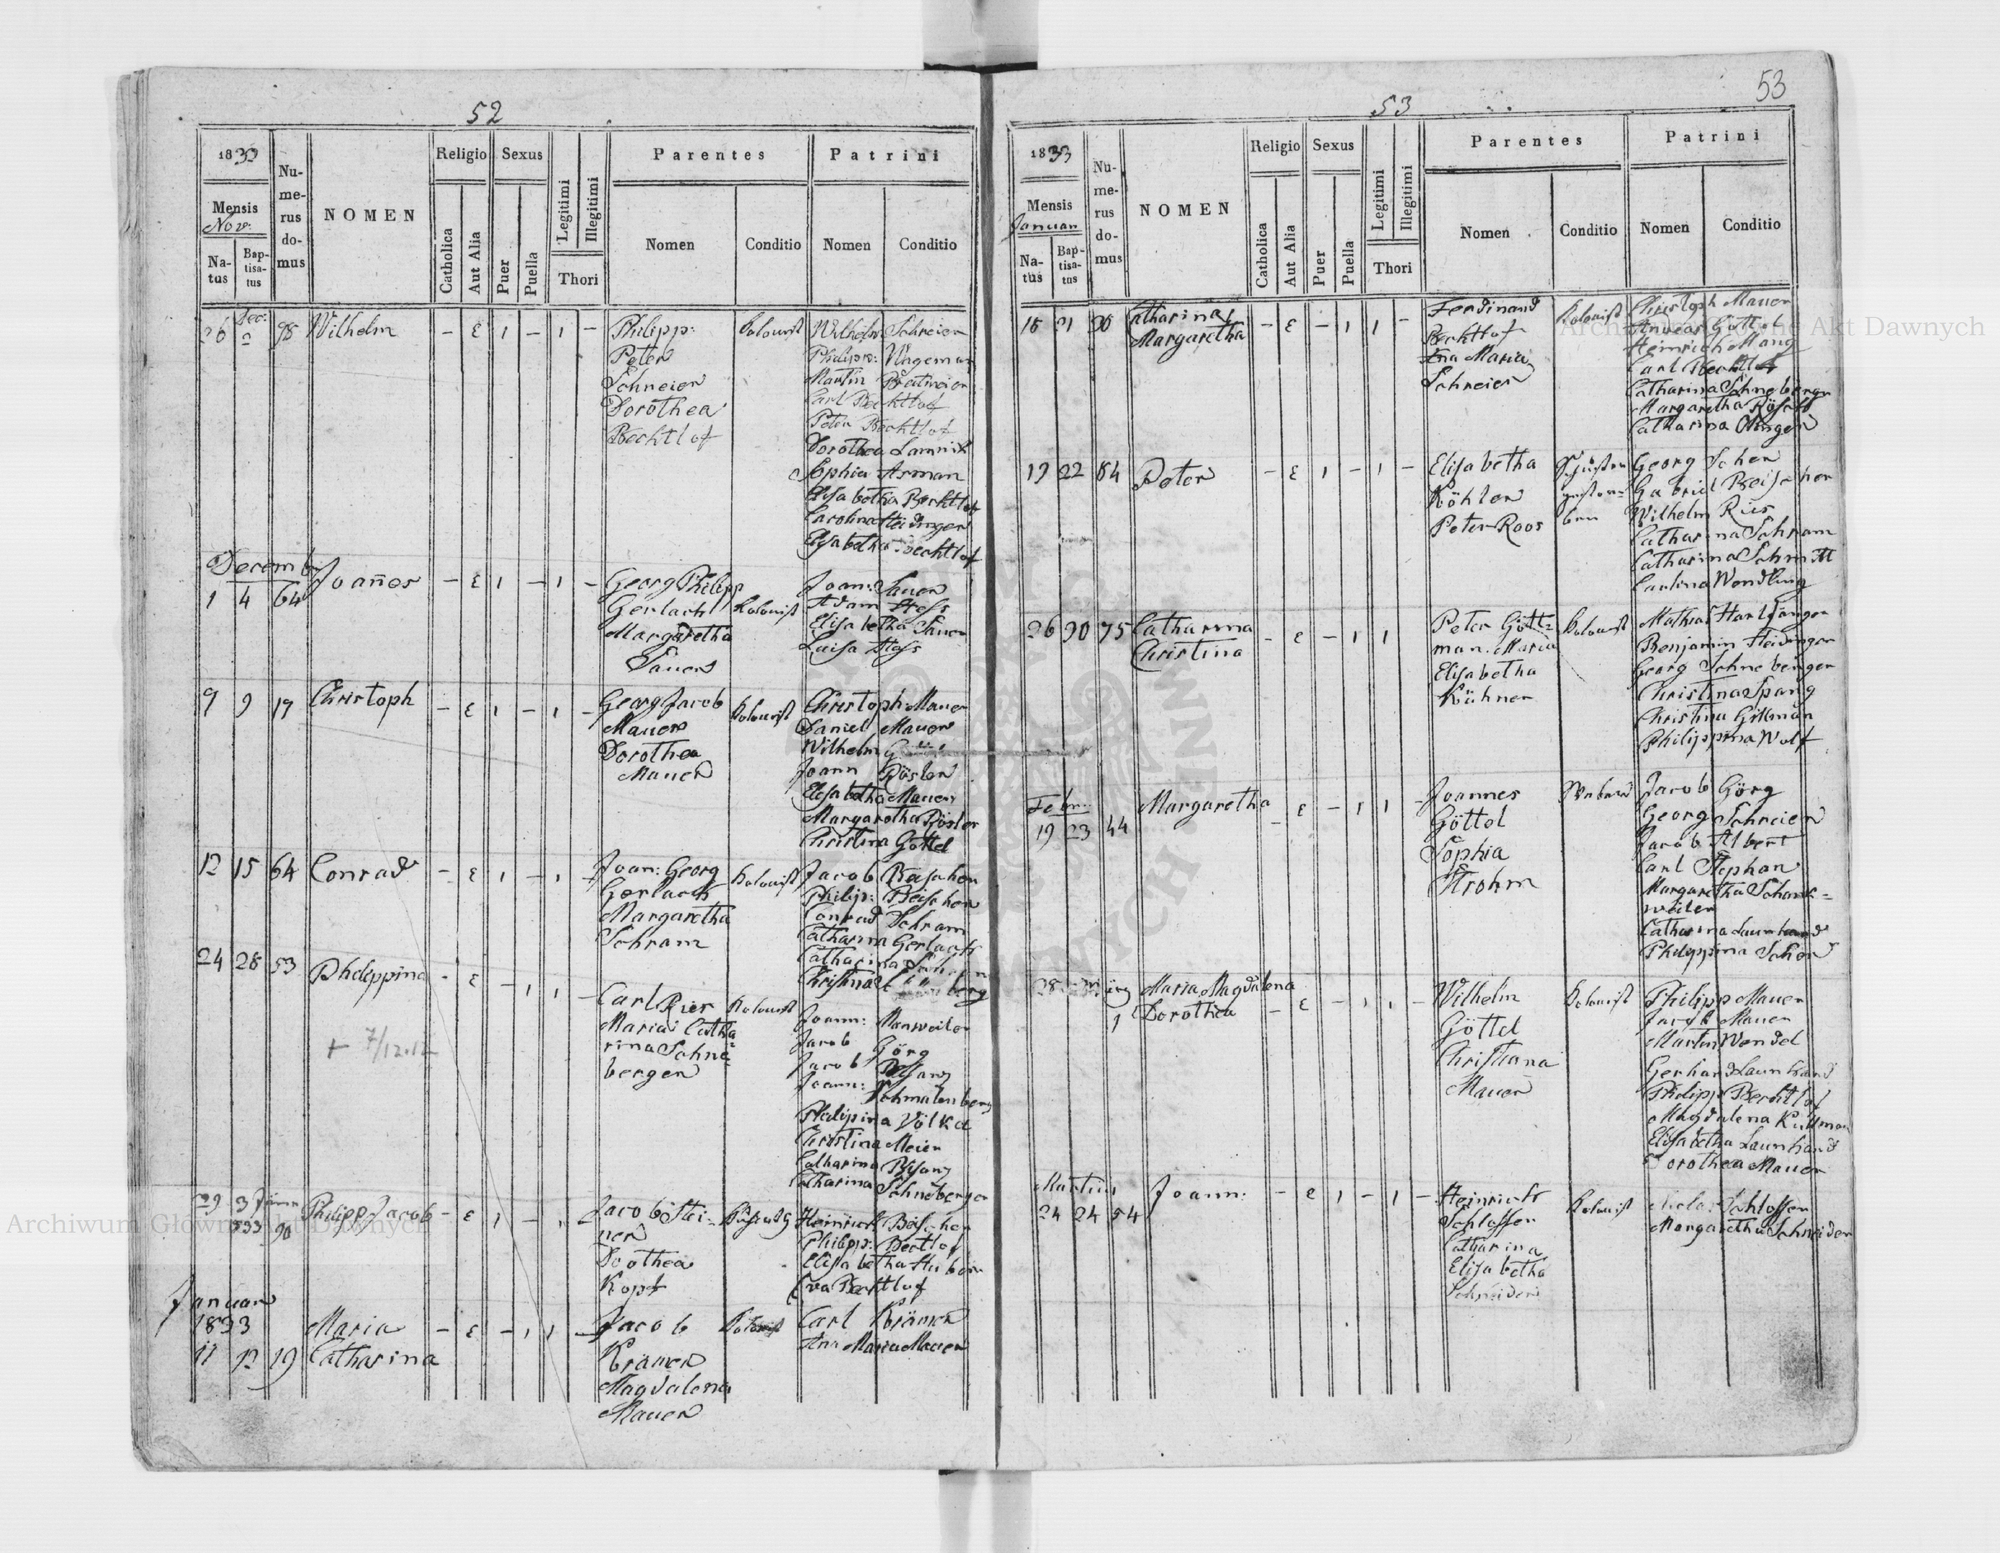 52
1832
Mensis
Nov:
Natus
Baptisatus
Numerus domus
NOMEN
Religio
Catholica
Aut Alia
Sexus
Puer
Puella
Legitimi
Illegitimi
Thori
Parentes
Nomen
Conditio
Patrini
Nomen
Conditio
26 Dec: 2 98 Wilhelm - E 1 - 1 -
Philipp:
Peter
Schreier
Dorothea
Bechtlof
Kolonist
Wilhelm Schreier
Philipp: Wageman
Martin
Carl Bechtlof
Peter Bechtlof
Dorothea
Sophia Arman
Elisabetha Bechtlof
Carolina Heidinger
Elisabetha Bechtlof
Decemb
1 4 64 Joañes - E 1 - 1 -
Georg Philipp
Gerlach
Margaretha
Sauer
Kolonist
Joan: Sauer
Adam
Elisabetha Sauer
Luisa
9 9 19 Christoph - E 1 - 1 -
Georg Jacob
Mauer
Dorothea
Mauer
Kolonist
Christoph Mauer
Daniel Mauer
Wilhelm
Joann Rösler
Elisabetha Mauer
Margaretha Rösler
Christina Göttel
12 15 64 Conrad - E 1 - 1 -
Joan: Georg
Gerlach
Margaretha
Schram
Kolonist
Jacob Beischer
Philip: Beischer
Conrad Schram
Catharina Gerlach
Catharina
Christina
24 28 53 Philippina - E - 1 1 -
+ 7/12.12
Carl Ries
Maria Catha-
rina Schne-
berger
Kolonist
Joann: Manweiler
Jacob Görg
Jacob Bisanz
Joann: Schmalenberg
Philippina Völkel
Christina Meier
Catharina Bisanz
Catharina Schneberger
29 3 Jäner 833 90 Philipp Jacob - E 1 - 1 -
Jacob Stei-
ner
Dorothea
Kopf
Heinrich Beischer
Philipp: Bechtlof
Elisabetha Huber
Eva Bechtlof
Januar
1833
11 12 19
Maria
Catharina
- E - 1 1 -
Jacob
Krämer
Magdalena
Mauer
Kolonist
Carl Krämer
Ana Maria Mauer
53
53
1833
Mensis
Januar
Natus
Baptisatus
Numerus domus
NOMEN
Religio
Catholica
Aut Alia
Sexus
Puer
Puella
Legitimi
Illegitimi
Thori
Parentes
Nomen
Conditio
Patrini
Nomen
Conditio
Catharina
Margaretha
- E - 1 1 -
Ferdinand
Bechtlof
Ana Maria
Schreier
Kolonist
Christoph Mauer
Andreas Göttel
Heinrich Mang
Carl Bechtlof
Catharina Schneberger
Margaretha
Catharina
19 22 84 Peter - E 1 - 1 -
Elisabetha
Köhler
Peter Roos
Georg Scher
Gabriel Beischer
Wilhelm Ries
Catharina Schram
Catharina Schmitt
Carlina Wendling
26 30 75 Catharina
Christina
- E - 1 1
Peter Gött-
man. Maria
Elisabetha
Kühner
Kolonist
Mathias Hartfanger
Benjamin Heidinger
Georg Schneberger
Christina Spang
Christina
Philippina Wolf
Febr:
19 23 44 Margaretha - E - 1 1 -
Joannes
Göttel
Sophia
Strohm
Jacob Görg
Georg Schreier
Jacob Albert
Carl Stephan
Margaretha Schank-
weiler
Catharina Launhard
Philippina Scher
28
Maria Magdalena
Dorothea
- E - 1 1 -
Wilhelm
Göttel
Christiana
Mauer
Kolonist
Philipp Mauer
Jacob Mauer
Martin Wendel
Gerhard Launhard
Philipp Bechtlof
Magdalena Kullman
Elisabetha Launhard
Dorothea Mauer
Martius
24 24 54 Joann: - E 1 - 1 -
Heinrich
Schlosser
Catharina
Elisabetha
Schneider
Kolonist
Schlosser
Margaretha Schneider
Archiwum Główne Akt Dawnych
Archiwum Główne Akt Dawnych